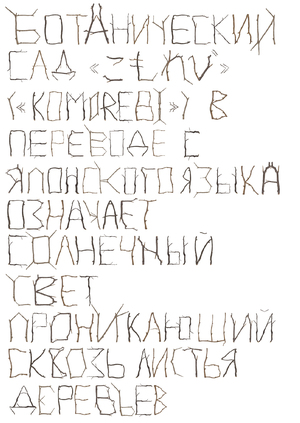 БОТАНИЧЕСКИЙ
САД «こもれび»
(«KOMOREBI») В
ПЕРЕВОДЕ С
ЯПОНСКОГО ЯЗЫКА
ОЗНАЧАЕТ
СОЛНЕЧНЫЙ
СВЕТ
ПРОНИКАЮЩИЙ
СКВОЗЬ ЛИСТЬЯ
ДЕРЕВЬЕВ